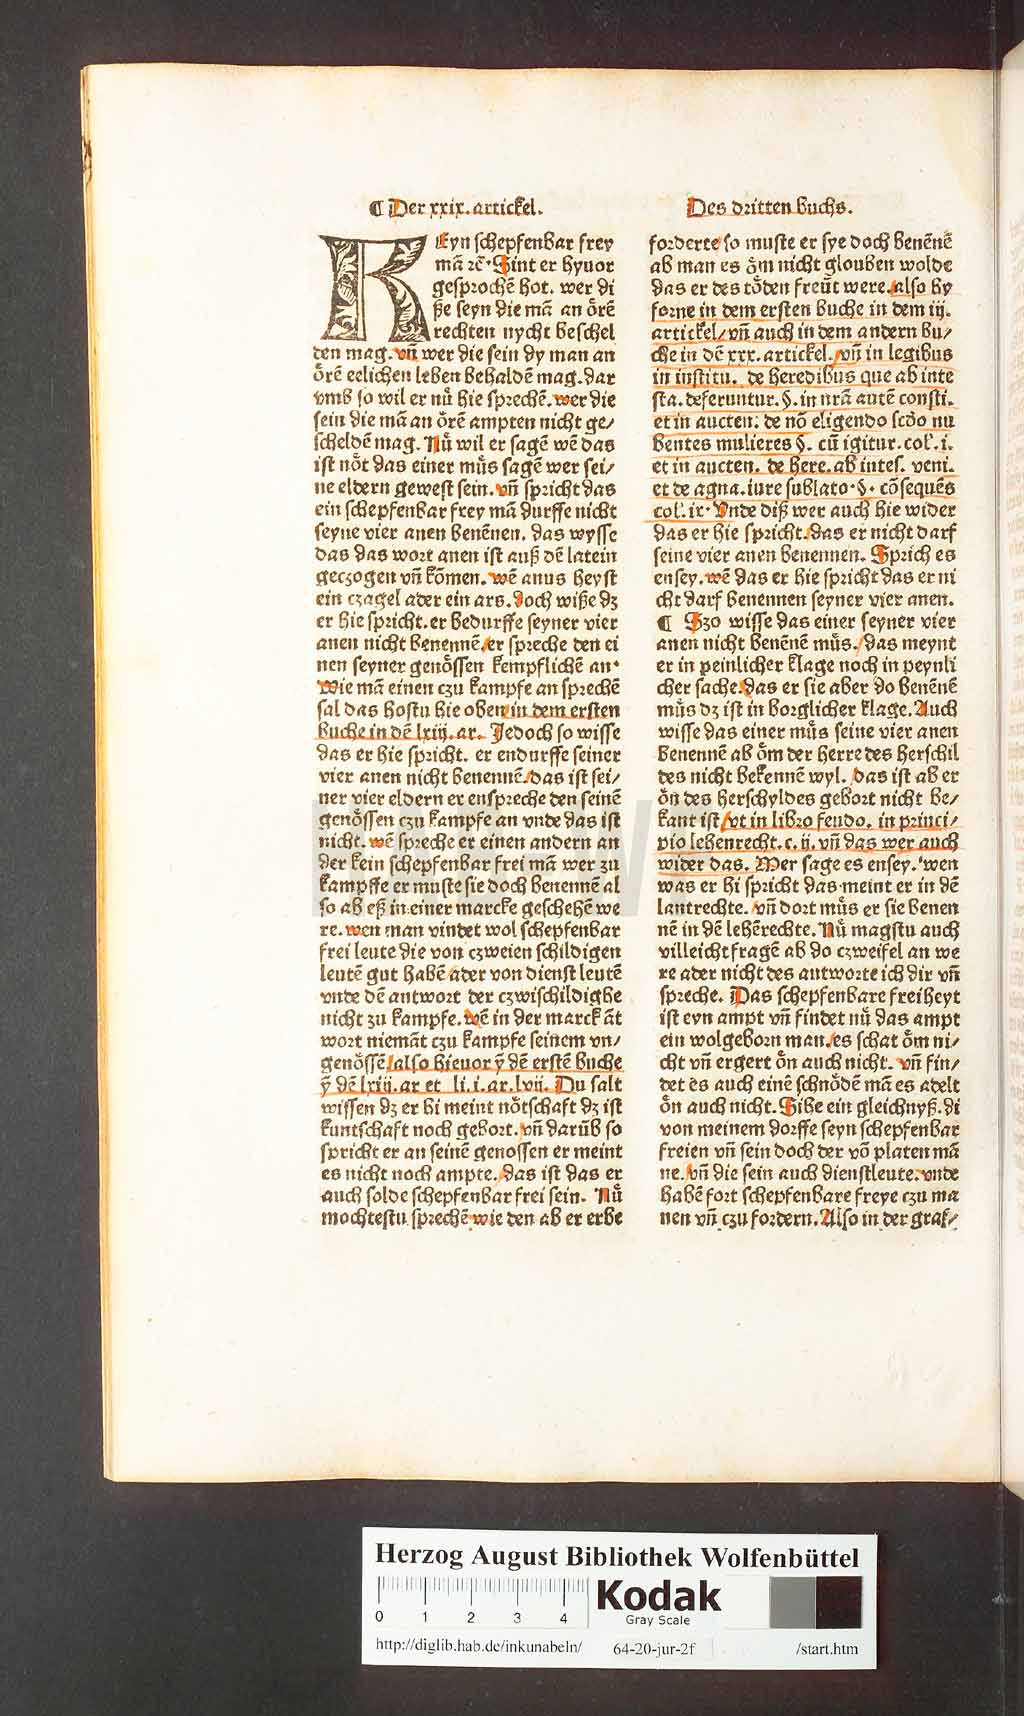 ¶ Der xxix. artickel.
KEyn schepfenbar frey
mā rc̄. Sint er hyuor
gesprochē hot. wer di
ße seyn die mā an ȯrē
rechten nycht beschel
den mag. vn̄ wer die sein dy man an
ȯrē eelichen leben behaldē mag. dar
vmb so wil er nů hie sprechē. wer die
sein die mā an ȯrē ampten nicht ge/
scheldē mag. Nů wil er sagē wē das
ist nȯt das einer můs sagē wer sei/
ne eldern gewest sein. vn̄ spricht das
ein schepfenbar frey mā durffe nicht
seyne vier anen benēnen. das wysse
das das wort anen ist auß dē latein
geczogen vn̄ kōmen. wē anus heyst
ein czagel ader ein ars. doch wiße dz
er hie spricht. er bedurffe seyner vier
anen nicht benennē/er spreche den ei
nen seyner genȯssen kempflichē an.
Wie mā einen czu kampfe an sprechē
sal das hostu hie oben/in dem ersten
buche in dē lxiij. ar. Jedoch so wisse
das er hie spricht. er endurffe seiner
vier anen nicht benennē/das ist sei/
ner vier eldern er enspreche den seinē
genȯssen czu kampfe an vnde das ist
nicht. wē spreche er einen andern an
der kein schepfenbar frei mā wer zu
kampffe er muste sie doch benennē al
so ab eß in einer marcke geschehē we
re. wen man vindet wol schepfenbar
frei leute die von czweien schildigen
leutē gut habē/ader von dienst leutē
vnde dē antwort der czwischildighe
nicht zu kampfe. wē in der marck āt
wort niemāt czu kampfe seinem vn/
genȯssē/also hieuor ȳ dē erstē buche
ȳ dē lxiij. ar et li. i. ar. lvij. Du salt
wissen dz er hi meint nȯtschaft dz ist
kuntschaft noch gebort. vn̄ darūb so
spricht er an seinē genossen er meint
es nicht noch ampte. das ist das er
auch solde schepfenbar frei sein. Nů
mochtestu sprechē wie den ab er erbe
Des dritten buchs.
forderte/so muste er sye doch benēnē
ab man es ȯm nicht glouben wolde
das er des tȯden freūt were. also hy
forne in dem ersten buche in dem iij.
artickel/vn̄ auch in dem andern bu/
che in dē xxx. artickel. vn̄ in legibus
in institu. de heredibus que ab inte
sta. deferuntur. §. in nrā autē consti.
et in aucten: de nō eligendo scd̄o nu
bentes mulieres §. cū igitur. col'. i.
et in aucten. de here. ab intes. veni.
et de agna. iure sublato. §. cōsequēs
col'. ix. Vnde diß wer auch hie wider
das er hie spricht. das er nicht darf
seine vier anen benennen. Sprich es
ensey. wē das er hie spricht das er ni
cht darf benennen seyner vier anen.
¶ Szo wisse das einer seyner vier
anen nicht benēnē můs. das meynt
er in peinlicher klage noch in peynli
cher sache. das er sie aber do benēnē
můs dz ist in borglicher klage. Auch
wisse das einer můs seine vier anen
benennē ab ȯm der herre des herschil
des nicht bekennē wyl. das ist ab er
ȯn des herschyldes gebort nicht be/
kant ist/vt in libro feudo. in princi/
pio lehenrecht. c. ij. vn̄ das wer auch
wider das. Mer sage es ensey. wen
was er hi spricht das meint er in dē
lantrechte. vn̄ dort můs er sie benen
nē in dē lehērechte. Nů magstu auch
villeicht fragē ab do czweifel an we
re ader nicht des antworte ich dir vn̄
spreche. Das schepfenbare freiheyt
ist eyn ampt vn̄ findet nů das ampt
ein wolgeborn man/es schat ȯm ni/
cht vn̄ ergert ȯn auch nicht. vn̄ fin/
det es auch einē schnȯdē mā es adelt
ȯn auch nicht. Sihe ein gleichnyß. di
von meinem dorffe seyn schepfenbar
freien vn̄ sein doch der vō platen mā
ne. vn̄ die sein auch dienstleute. vnde
habē fort schepfenbare freye czu ma
nen vn̄ czu fordern. Also in der graf/
Herzog August Bibliothek Wolfenbüttel
0 1 2 3 4
Kodak
Gray Scale
http://diglib.hab.de/inkunabeln/ 64-20-jur-2f /start.htm